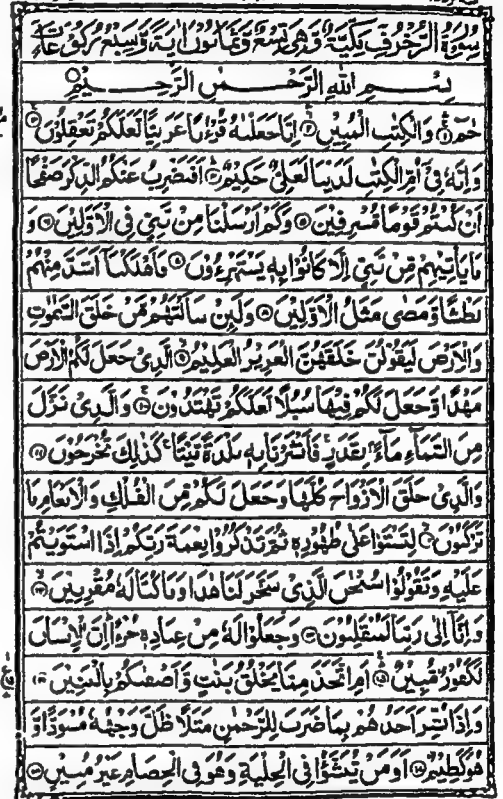 سُوْرَةُ الزُّخْرُفِ مَكِّيَّةٌ وَّهِيَ تِسْعٌ وَّثَمَانُوْنَ اٰيَةً وَّسَبْعُ رُكُوْعَاتٍ
بِسْمِ اللّٰهِ الرَّحْمٰنِ الرَّحِيْمِ
حٰمٓ ۝۱ وَالْكِتٰبِ الْمُبِيْنِ ۝۲ اِنَّا جَعَلْنٰهُ قُرْءٰنًا عَرَبِيًّا لَّعَلَّكُمْ تَعْقِلُوْنَ ۝۳
وَاِنَّهٗ فِيْٓ اُمِّ الْكِتٰبِ لَدَيْنَا لَعَلِيٌّ حَكِيْمٌ ۝۴ اَفَنَضْرِبُ عَنْكُمُ الذِّكْرَ صَفْحًا
اَنْ كُنْتُمْ قَوْمًا مُّسْرِفِيْنَ ۝۵ وَكَمْ اَرْسَلْنَا مِنْ نَّبِيٍّ فِي الْاَوَّلِيْنَ ۝۶ وَ
مَا يَاْتِيْهِمْ مِّنْ نَّبِيٍّ اِلَّا كَانُوْا بِهٖ يَسْتَهْزِءُوْنَ ۝۷ فَاَهْلَكْنَآ اَشَدَّ مِنْهُمْ
بَطْشًا وَّمَضٰى مَثَلُ الْاَوَّلِيْنَ ۝۸ وَلَئِنْ سَاَلْتَهُمْ مَّنْ خَلَقَ السَّمٰوٰتِ
وَالْاَرْضَ لَيَقُوْلُنَّ خَلَقَهُنَّ الْعَزِيْزُ الْعَلِيْمُ ۝۹ الَّذِيْ جَعَلَ لَكُمُ الْاَرْضَ
مَهْدًا وَّجَعَلَ لَكُمْ فِيْهَا سُبُلًا لَّعَلَّكُمْ تَهْتَدُوْنَ ۝۱۰ وَالَّذِيْ نَزَّلَ
مِنَ السَّمَآءِ مَآءًۢ بِقَدَرٍ فَاَنْشَرْنَا بِهٖ بَلْدَةً مَّيْتًا كَذٰلِكَ تُخْرَجُوْنَ ۝۱۱
وَالَّذِيْ خَلَقَ الْاَزْوَاجَ كُلَّهَا وَجَعَلَ لَكُمْ مِّنَ الْفُلْكِ وَالْاَنْعَامِ مَا
تَرْكَبُوْنَ ۝۱۲ لِتَسْتَوٗا عَلٰى ظُهُوْرِهٖ ثُمَّ تَذْكُرُوْا نِعْمَةَ رَبِّكُمْ اِذَا اسْتَوَيْتُمْ
عَلَيْهِ وَتَقُوْلُوْا سُبْحٰنَ الَّذِيْ سَخَّرَ لَنَا هٰذَا وَمَا كُنَّا لَهٗ مُقْرِنِيْنَ ۝۱۳
وَاِنَّآ اِلٰى رَبِّنَا لَمُنْقَلِبُوْنَ ۝۱۴ وَجَعَلُوْا لَهٗ مِنْ عِبَادِهٖ جُزْءًا اِنَّ الْاِنْسَانَ
لَكَفُوْرٌ مُّبِيْنٌ ۝۱۵ اَمِ اتَّخَذَ مِمَّا يَخْلُقُ بَنٰتٍ وَّاَصْفٰىكُمْ بِالْبَنِيْنَ ۝۱۶
وَاِذَا بُشِّرَ اَحَدُهُمْ بِمَا ضَرَبَ لِلرَّحْمٰنِ مَثَلًا ظَلَّ وَجْهُهٗ مُسْوَدًّا وَّ
هُوَ كَظِيْمٌ ۝۱۷ اَوَمَنْ يُّنَشَّؤُا فِي الْحِلْيَةِ وَهُوَ فِي الْخِصَامِ غَيْرُ مُبِيْنٍ ۝۱۸